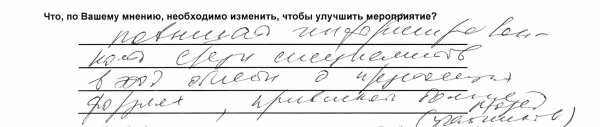 Что, по Вашему мнению, необходимо изменить, чтобы улучшить мероприятие?
повышать информирован-
ность среди специалистов
в этой области о
формах, привлекать больше
людей